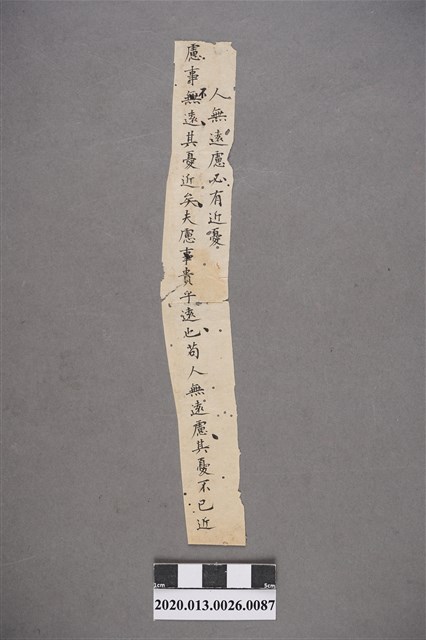 人無遠慮必有近憂
慮事不遠其憂近矣夫慮事貴乎遠也苟人無遠慮其憂不已近
1cm 5cm
2020.013.0026.0087